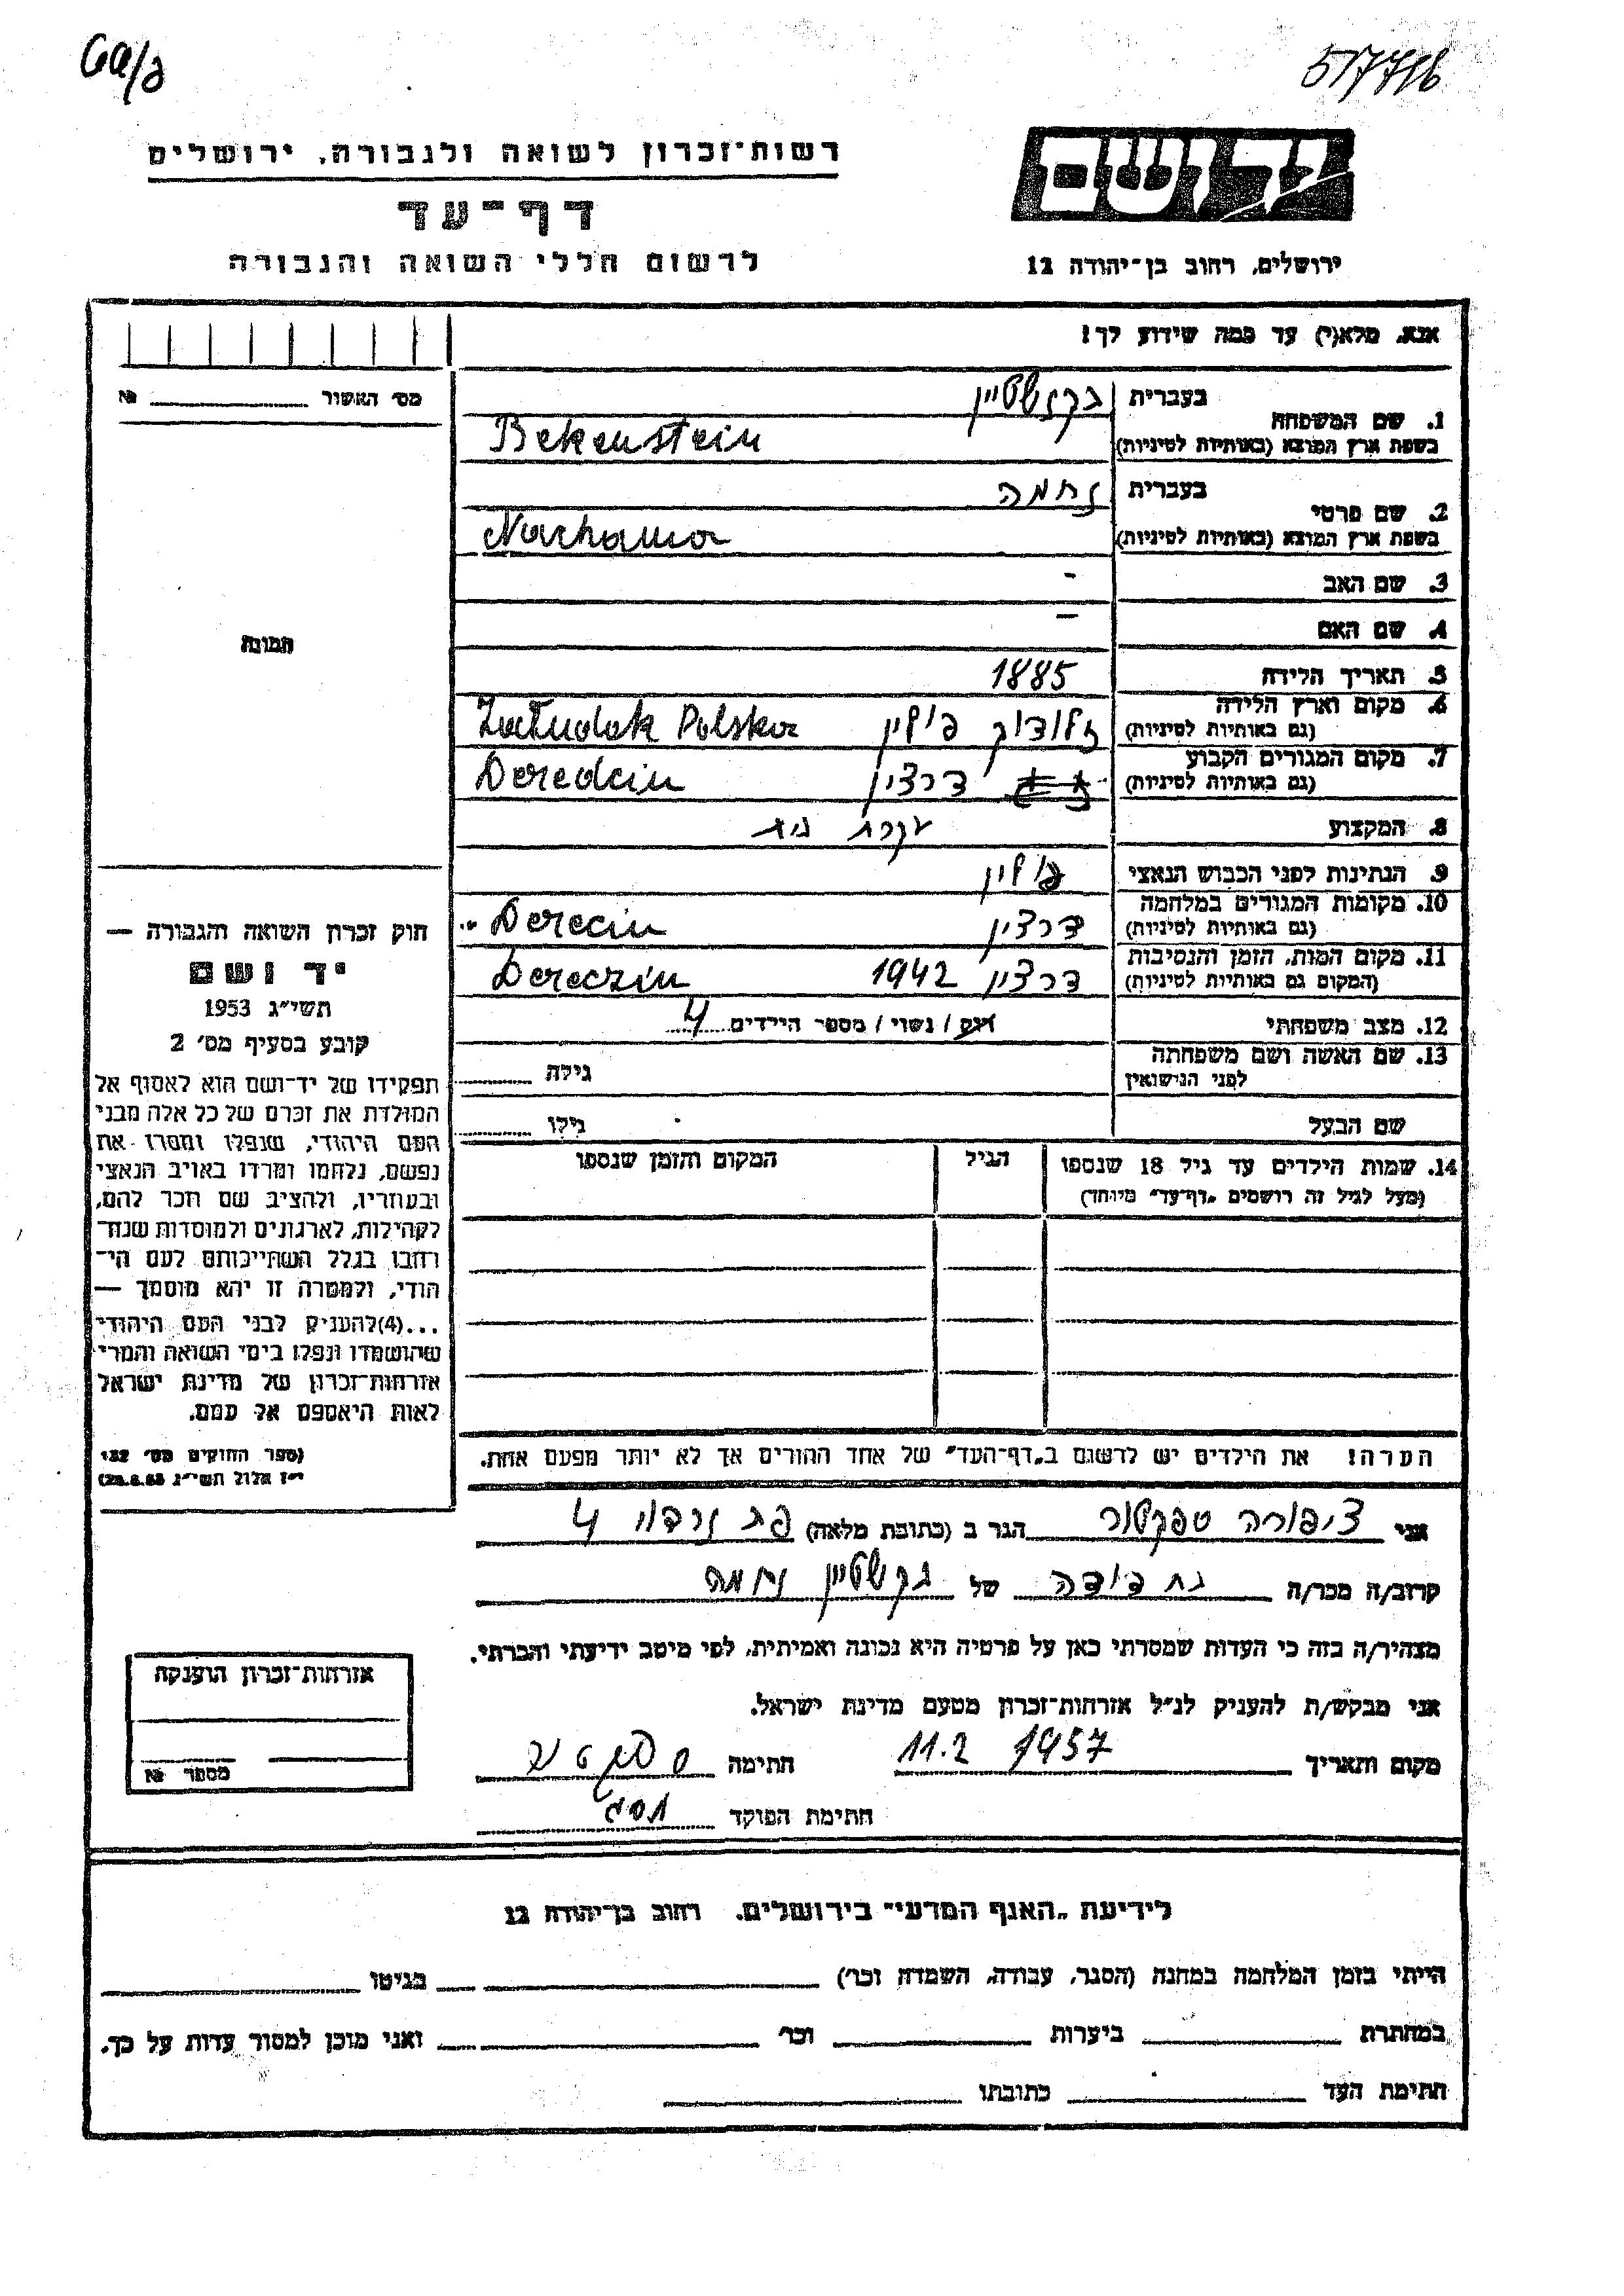 517716
יד ושם
רשות־זכרון לשואה ולגבורה, ירושלים
דף־עד
לרשום חללי השואה והגבורה
ירושלים, רחוב בן־יהודה 12
אנא, מלא(י) עד כמה שידוע לך!
מס׳ האשור № 
1. שם המשפחה בעברית בקנשטיין
בשפת ארץ המוצא (באותיות לטיניות) Bekenstein
2. שם פרטי בעברית נחמה
בשפת ארץ המוצא (באותיות לטיניות) Nachama
3. שם האב -
4. שם האם -
5. תאריך הלידה 1885
6. מקום וארץ הלידה
(גם באותיות לטיניות) זלודוק פולין Załudok Polska
7. מקום המגורים הקבוע
(גם באותיות לטיניות) דרצין Deredcin
8. המקצוע עקרת בית
9. הנתינות לפני הכבוש הנאצי פולין
10. מקומות המגורים במלחמה
(גם באותיות לטיניות) דרצין Derecin
11. מקום המות, הזמן והנסיבות
(המקום גם באותיות לטיניות) דרצין 1942 Dereczin
12. מצב משפחתי רווק / נשוי / מספר הילדים 4
13. שם האשה ושם משפחתה
לפני הנישואין גילה
שם הבעל גילו
14. שמות הילדים עד גיל 18 שנספו הגיל המקום והזמן שנספו
(מעל לגיל זה רושמים „דף־עד״ מיוחד)
תמונה
חוק זכרון השואה והגבורה —
יד ושם
תשי״ג 1953
קובע בסעיף מס׳ 2
תפקידו של יד־ושם הוא לאסוף אל
המולדת את זכרם של כל אלה מבני
העם היהודי, שנפלו ומסרו את
נפשם, נלחמו ומרדו באויב הנאצי
ובעוזריו, ולהציב שם וזכר להם,
לקהילות, לארגונים ולמוסדות שנח־
רבו בגלל השתייכותם לעם הי־
הודי, ולמטרה זו יהא מוסמך —
...(4) להעניק לבני העם היהודי
שהושמדו ונפלו בימי השואה והמרי
אזרחות־זכרון של מדינת ישראל
לאות היאספם אל עמם.
(ספר החוקים מס׳ 132,
י״ז אלול תשי״ג 28.8.53)
הערה! את הילדים יש לרשום ב„דף־העד״ של אחד ההורים אך לא יותר מפעם אחת.
אני ציפורה ספקטור הגר ב (כתובת מלאה) 4
קרוב/ה מכר/ה בת דודה של בקנשטיין נחמה
מצהיר/ה בזה כי העדות שמסרתי כאן על פרטיה היא נכונה ואמיתית, לפי מיטב ידיעתי והכרתי.
אני מבקש/ת להעניק לנ״ל אזרחות־זכרון מטעם מדינת ישראל.
מקום ותאריך 11.2 1957 חתימה ספקטור
חתימת הפוקד
אזרחות־זכרון הוענקה
מספר №
לידיעת „האגף המדעי״ בירושלים, רחוב בן־יהודה 12
הייתי בזמן המלחמה במחנה (הסגר, עבודה, השמדה וכו׳) בגיטו
במחתרת ביערות וכו׳ ואני מוכן למסור עדות על כך.
חתימת העד כתובתו